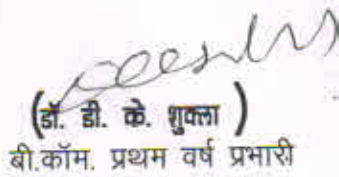 (डॉ. डी. के. शुक्ला )
बी.कॉम. प्रथम वर्ष प्रभारी